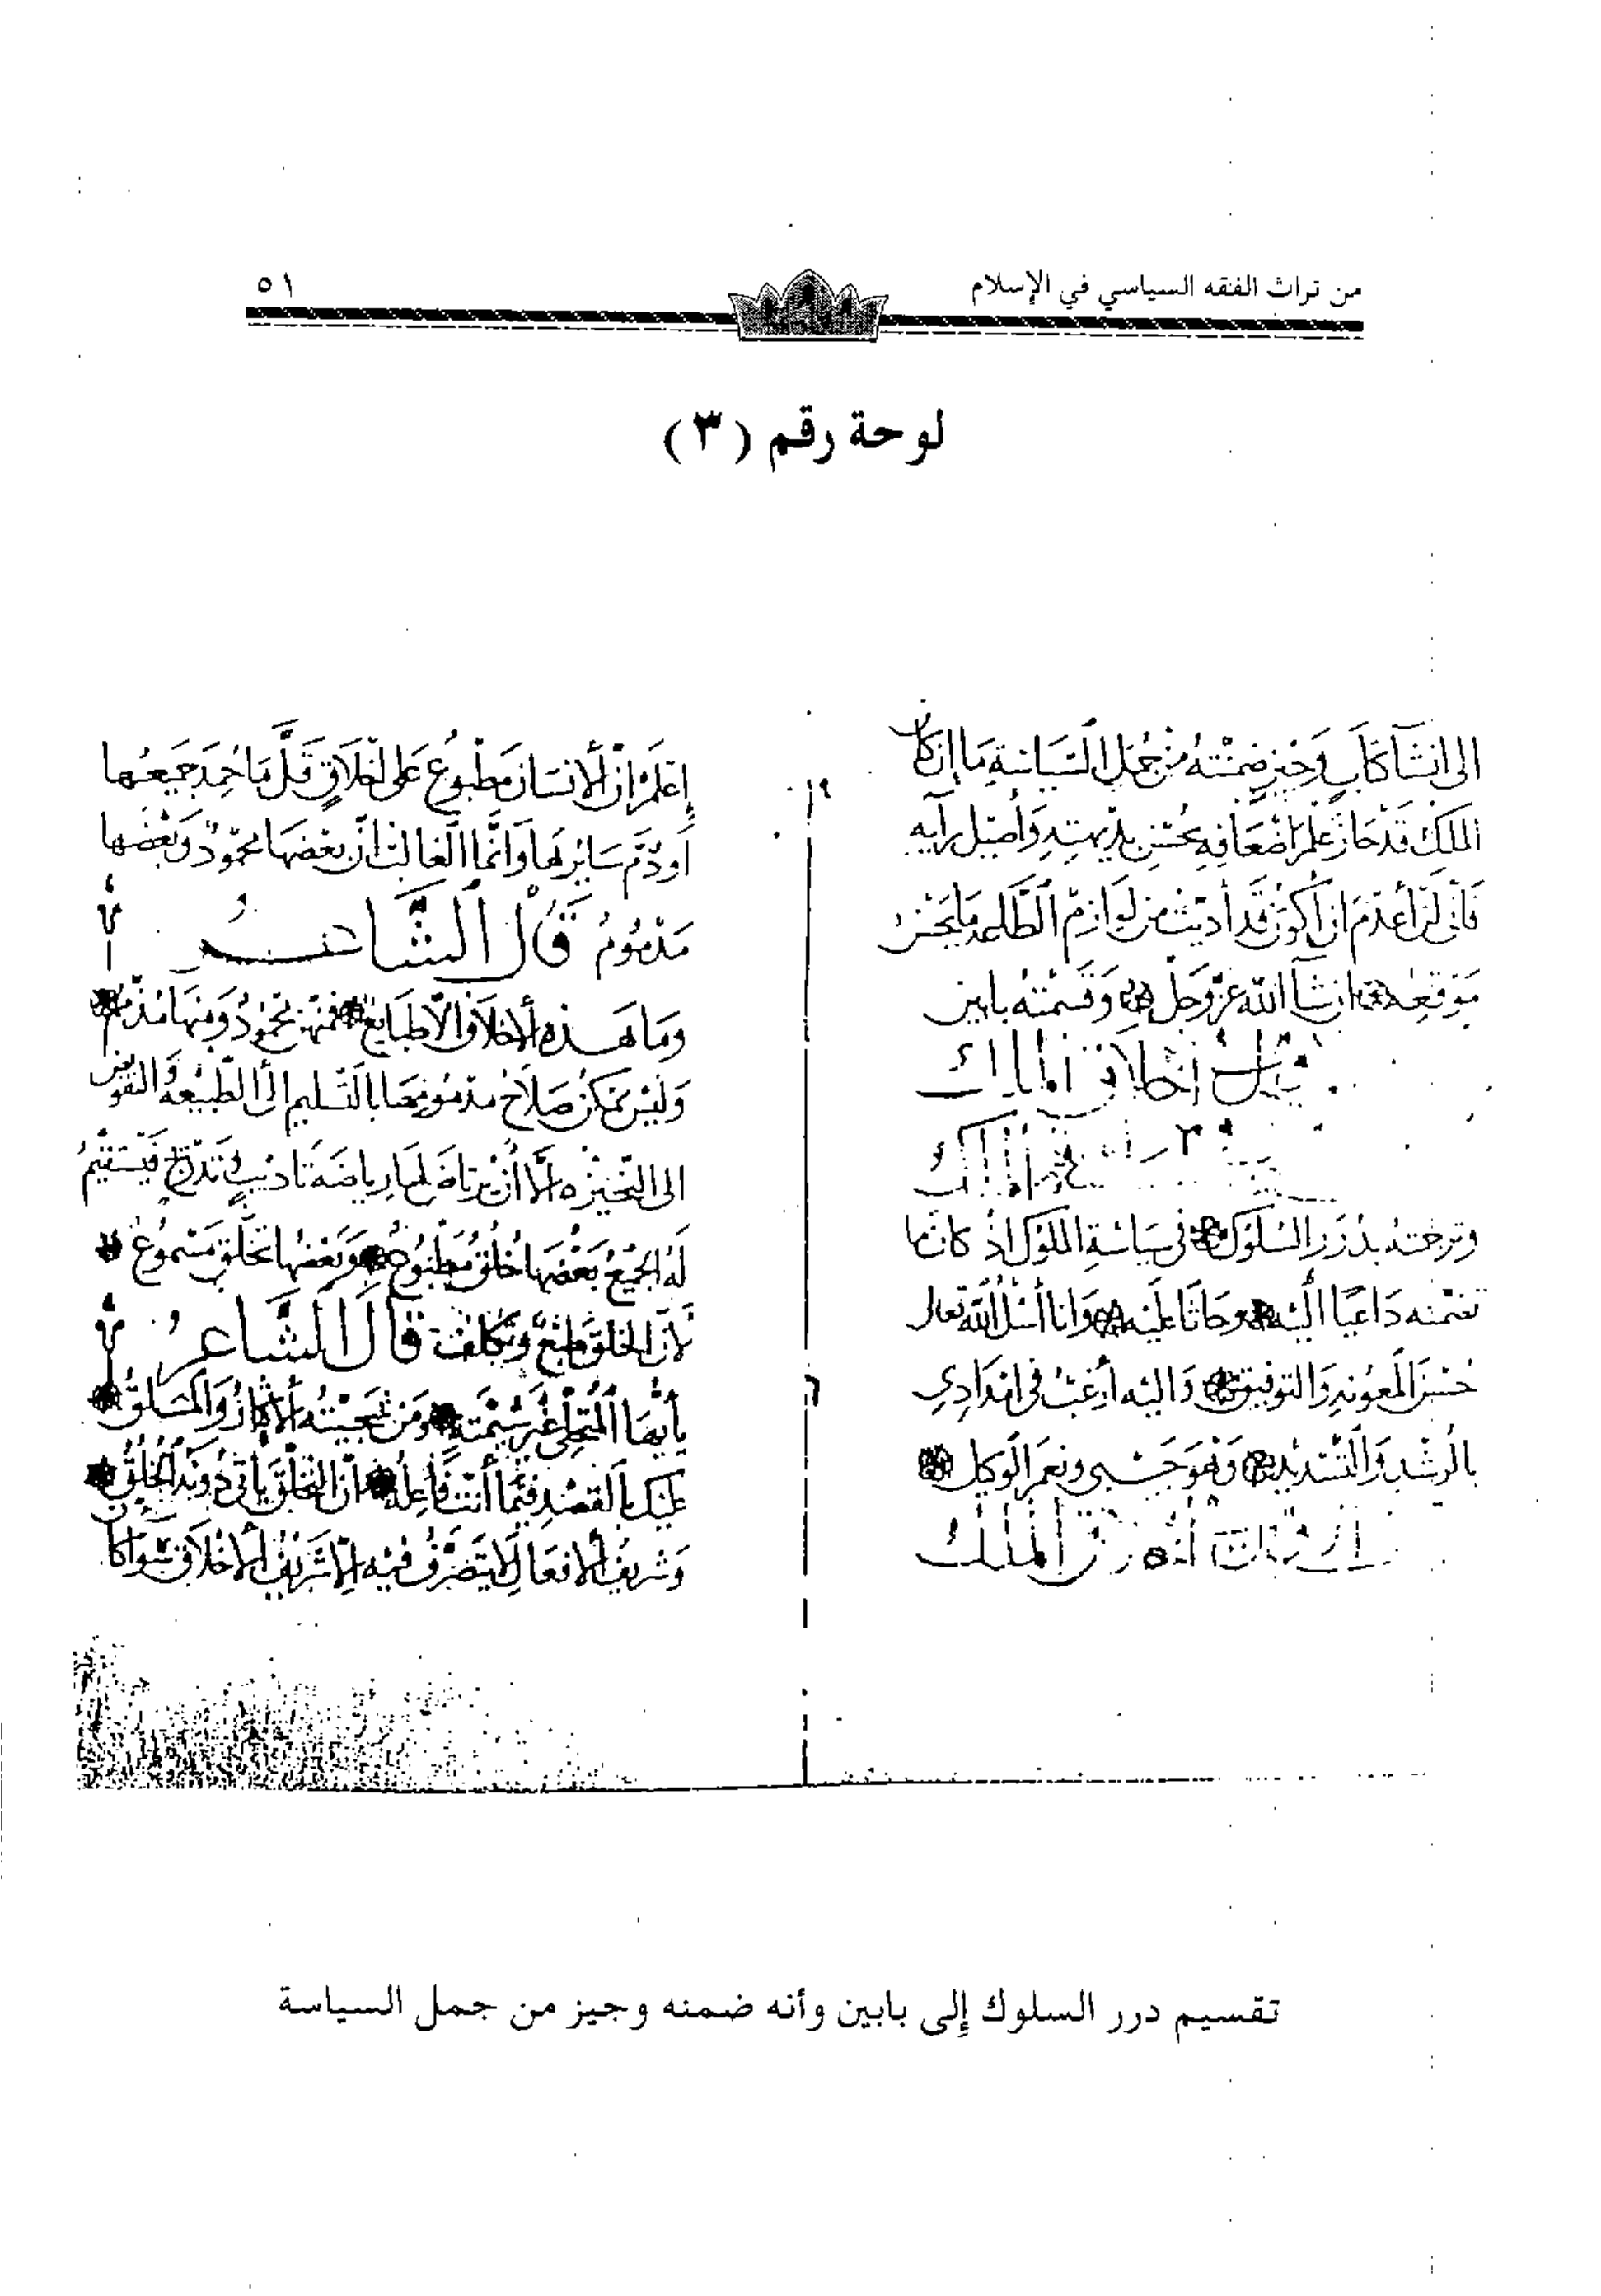 من تراث الفقه السياسي في الإسلام
٥١
لوحة رقم (٣)
الى انشآ كتاب وجيز ضمنته من جمل السياسة ما إن كان
الملك قد حاز علم اضعافه بحسن بديهته وأصيل رأيه
فانى لن أعدم ان أكون قد أديت من لوازم الطاعه ما يحسن
موقعه ان شآ الله عز وجل وقسمته بابين
اخلاق الملك
الملك
وترجمته بدرر السلوك في سياسة الملوك اذ كان ما
تضمنه داعيًا اليه وحاثا عليه وانا أسئل الله تعالى
حسن المعونه والتوفيق واليه أرغب فى امدادي
بالرشد والتسديد وهو حسبى ونعم الوكيل
الملك
إعلم ان الانسان مطبوع على اخلاق قل ما حمد جميعها
او ذم سايرها وانما الغالب ان بعضها محمود وبعضها
مذموم قال الشاعر
وما هذه الاخلاق الا طبايع فمنهن محمود ومنها مذمم
وليس يمكن صلاح مذمومها بالتسليم الى الطبيعه والتفويض
الى النحيزه الا أن يرتاض لها رياضة تاديب وتدريج فيستقيم
له الجميع بعضها خلق مطبوع وبعضها تخلق مسموع
لان الخلق طبع وتكلف قال الشاعر
يأيها المتحلى غير شيمته ومن سجيته الاكثار والملق
عليك بالقصد فيما أنت فاعله ان التخلق ياتى دونه الخلق
وشريف الافعال لا يتصرف فيه الا شريف الاخلاق سوآ كان
تقسيم درر السلوك إلى بابين وأنه ضمنه وجيز من جمل السياسة